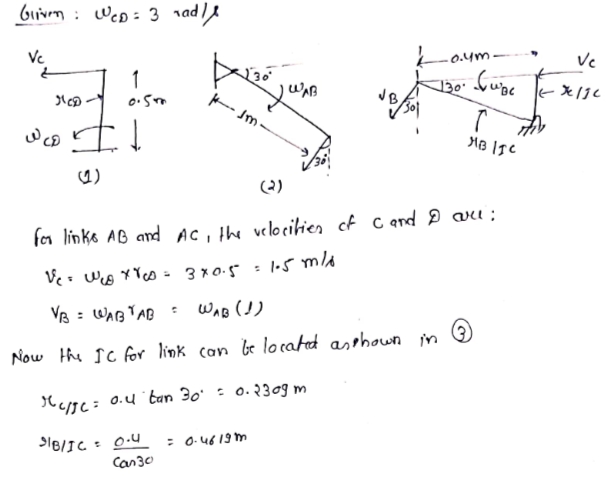 Given : ωCD = 3 rad/s
Vc
rCD
0.5m
ωCD
(1)
30°
ωAB
1m
30°
(2)
0.4m
Vc
VB
30°
30
ωBC
r/IC
rB/IC
for links AB and AC, the velocities of C and D are :
Vc = ωCD × rCD = 3 × 0.5 = 1.5 m/s
VB = ωAB rAB = ωAB (1)
Now the IC for link can be located as shown in (3)
rC/IC = 0.4 tan 30° = 0.2309 m
rB/IC = 0.4 / Cos30 = 0.4619m